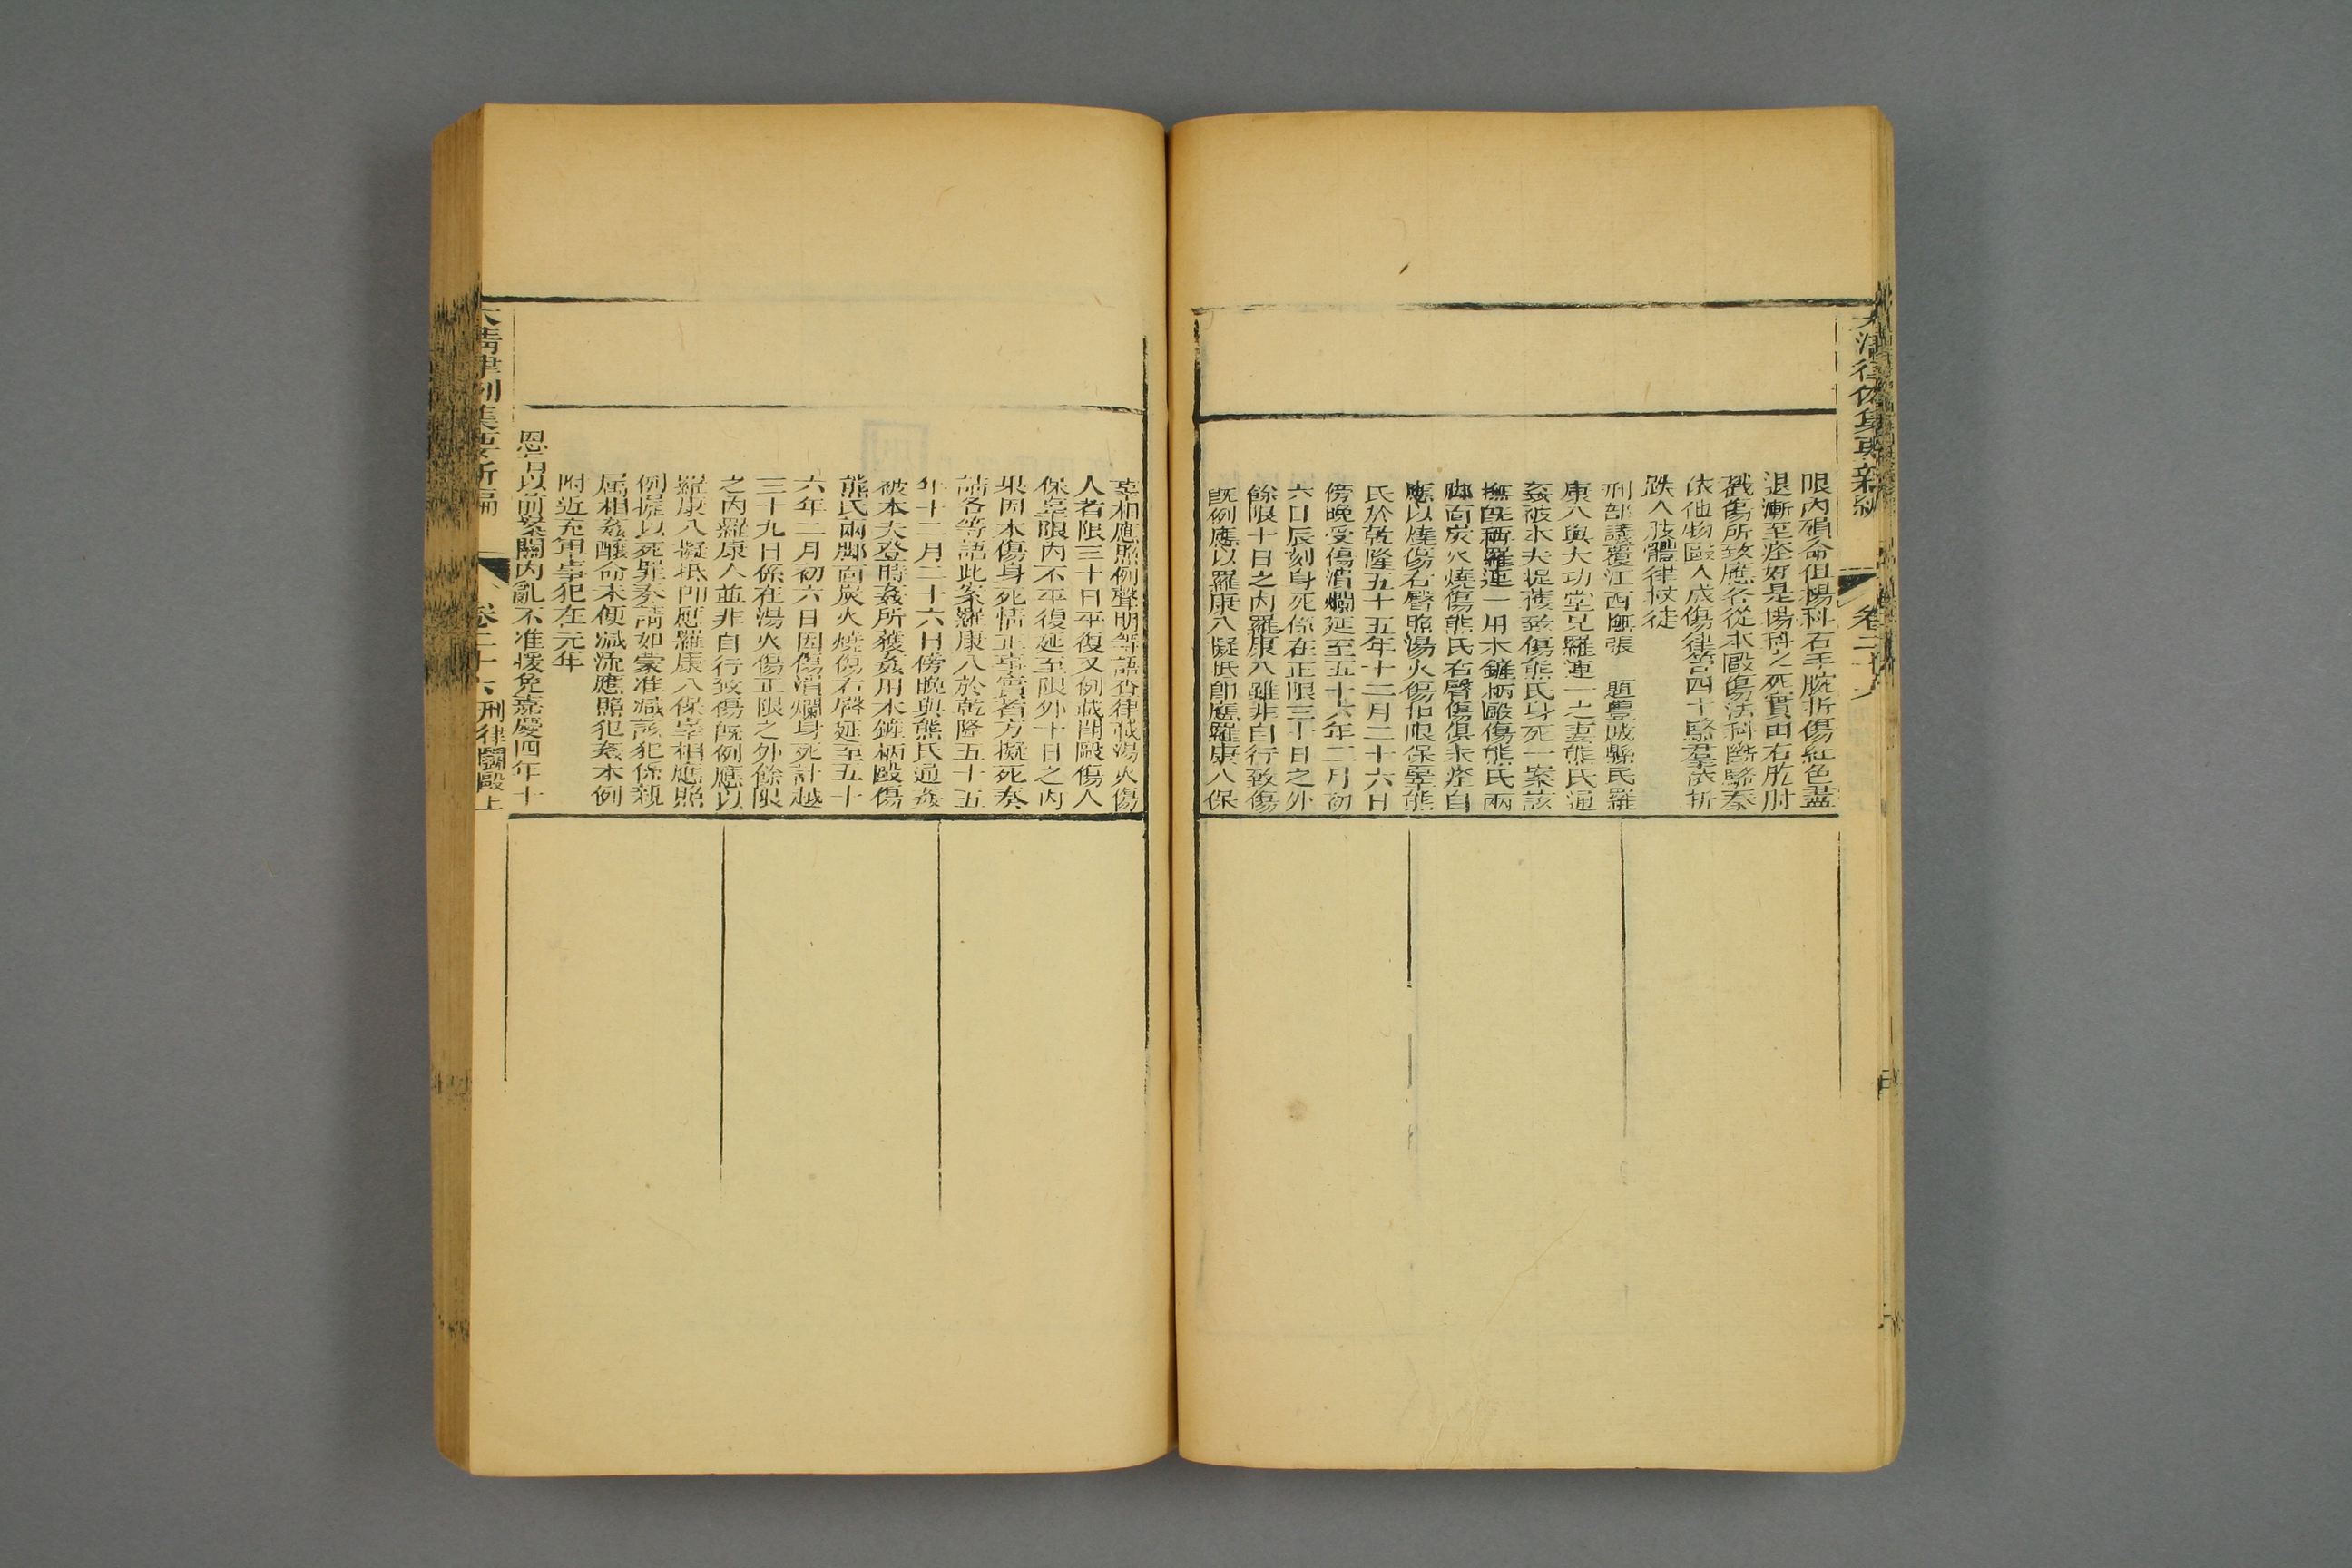 大清律例集要新編
卷二十六
限內殞命但楊科右手腕折傷紅色蓋
退漸至痊好是楊科之死實由右肐肘
戳傷所致應各從本毆傷法科斷駱泰
依他物毆人成傷律笞四十駱羣依折
跌人肢體律杖徒
刑部議覆江西撫張 題豐城縣民羅
康八與大功堂兄羅連一之妻熊氏通
姦被本夫捉獲致傷熊氏身死一案該
撫既稱羅連一用木鏟柄毆傷熊氏兩
脚面炭火燒傷熊氏右臀傷俱未痊自
應以燒傷右臀照湯火傷扣限保辜熊
氏於乾隆五十五年十二月二十六日
傍晚受傷潰爛延至五十六年二月初
六日辰刻身死係在正限三十日之外
餘限十日之內羅康八雖非自行致傷
既例應以羅康八擬抵即應羅康八保
辜相應照例聲明等語查律載湯火傷
人者限三十日平復又例載鬬毆傷人
保辜限內不平復延至限外十日之內
果因本傷身死情正事實者方擬死奏
請各等語此案羅康八於乾隆五十五
年十二月二十六日傍晚與熊氏通姦
被本夫登時姦所獲姦用木鏟柄毆傷
熊氏兩脚面炭火燒傷右臀延至五十
六年二月初六日因傷潰爛身死計越
三十九日係在湯火傷正限之外餘限
之內羅康八並非自行致傷既例應以
羅康八擬抵即應羅康八保辜相應照
例擬以死罪奏請如蒙准減該犯係親
屬相姦釀命未便減流應照犯姦本例
附近充軍事犯在元年
恩旨以前案關內亂不准援免嘉慶四年十
大清律例集要新編
卷二十六 刑律鬬毆上